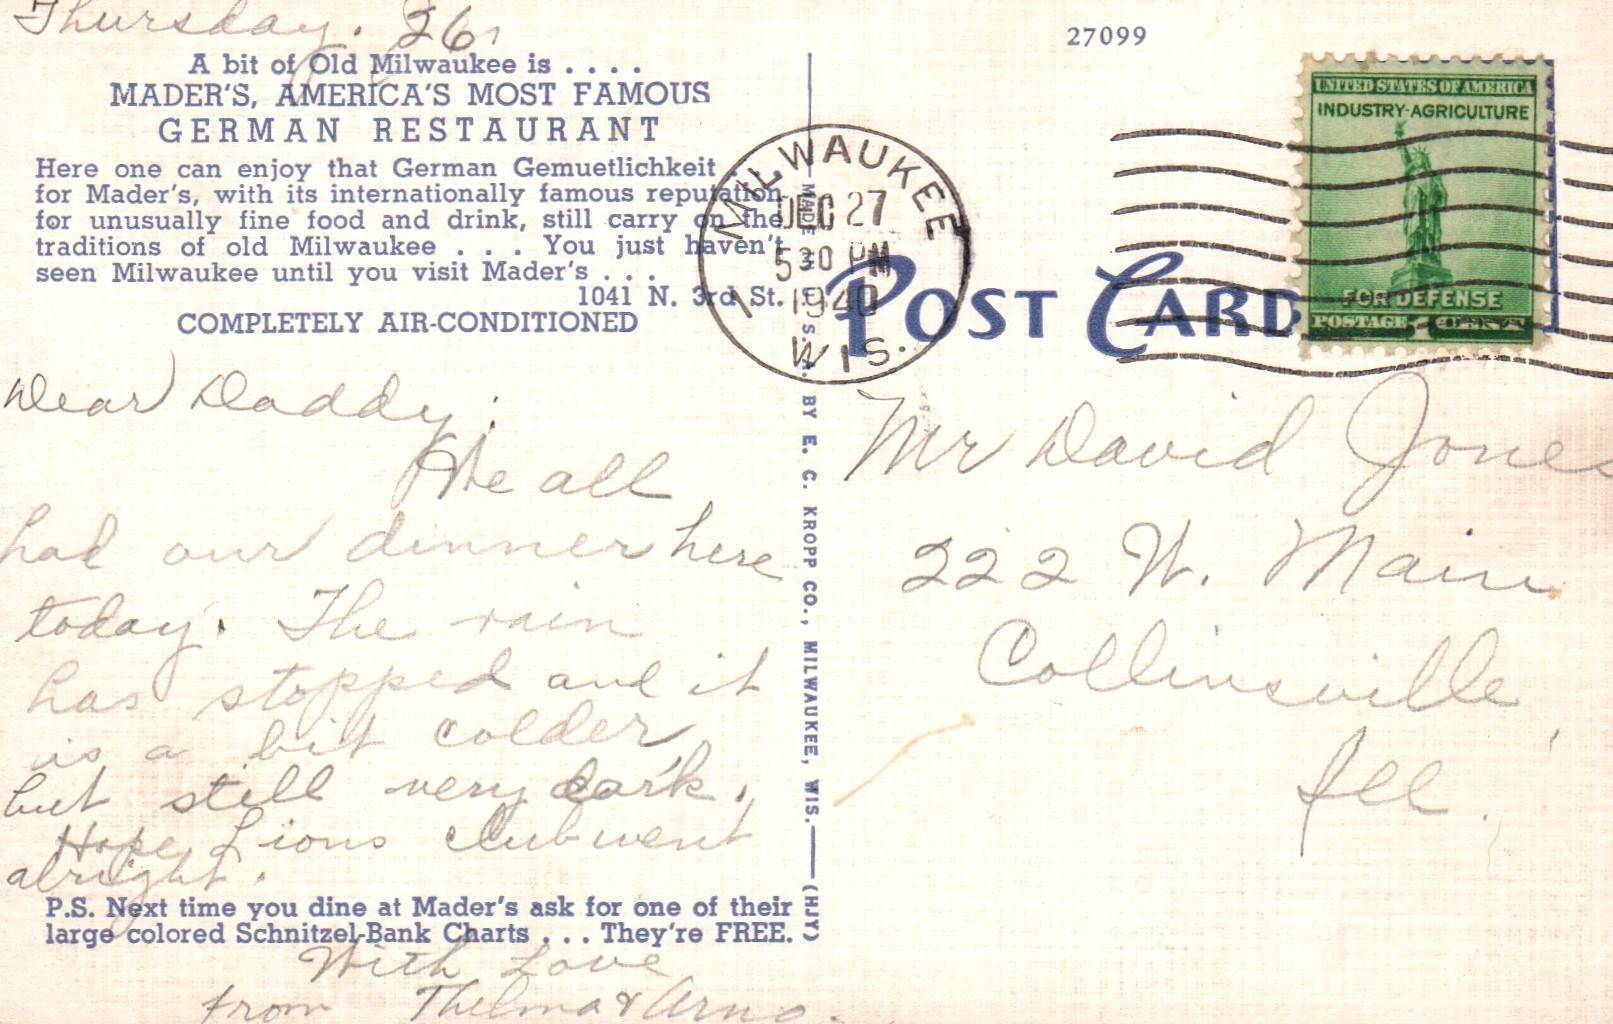 Thursday. 26,
A bit of Old Milwaukee is . . . .
MADER'S, AMERICA'S MOST FAMOUS
GERMAN RESTAURANT
Here one can enjoy that German Gemuetlichkeit
for Mader's, with its internationally famous reputation
for unusually fine food and drink, still carry on the
traditions of old Milwaukee . . . . You just haven't
seen Milwaukee until you visit Mader's . . .
1041 N. 3rd St.
COMPLETELY AIR-CONDITIONED
Dear Daddy;
We all
had our dinner here
today. The rain
has stopped and it
is a bit colder,
but still very dark.
Hope Lions club went
alright.
P.S. Next time you dine at Mader's ask for one of their
large colored Schnitzel-Bank Charts . . . They're FREE.
With Love
from Thelma & Arno.
MADE IN U. S. A. BY E. C. KROPP CO., MILWAUKEE, WIS. (HJY)
27099
MILWAUKEE
DEC 27
5 30 PM
1940
1
WIS.
POST CARD
UNITED STATES OF AMERICA
INDUSTRY-AGRICULTURE
FOR DEFENSE
POSTAGE 1 CENT
Mr David Jones
222 W. Main
Collinsville,
Ill.